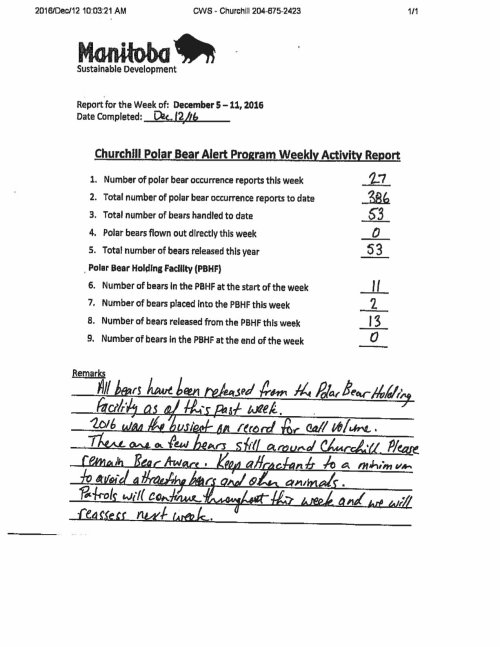 2016/Dec/12 10:03:21 AM CWS - Churchill 204-675-2423 1/1
Manitoba
Sustainable Development
Report for the Week of: December 5 – 11, 2016
Date Completed: Dec. 12/16
Churchill Polar Bear Alert Program Weekly Activity Report
1. Number of polar bear occurrence reports this week 27
2. Total number of polar bear occurrence reports to date 386
3. Total number of bears handled to date 53
4. Polar bears flown out directly this week 0
5. Total number of bears released this year 53
Polar Bear Holding Facility (PBHF)
6. Number of bears in the PBHF at the start of the week 11
7. Number of bears placed into the PBHF this week 2
8. Number of bears released from the PBHF this week 13
9. Number of bears in the PBHF at the end of the week 0
Remarks
All bears have been released from the Polar Bear Holding
facility as of this past week.
2016 was the busiest on record for call volume.
There are a few bears still around Churchill. Please
remain Bear Aware. Keep attractants to a minimum
to avoid attracting bears and other animals.
Patrols will continue throughout this week and we will
reassess next week.